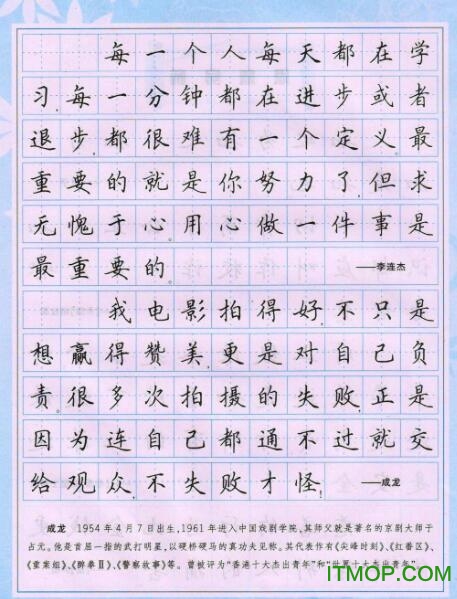 每一个人每天都在学
习.每一分钟都在进步或者
退步.都很难有一个定义.最
重要的就是你努力了.但求
无愧于心.用心做一件事是
最重要的. ——李连杰
我电影拍得好.不只是
想赢得赞美.更是对自己负
责。很多次拍摄的失败.正是
因为连自己都通不过就交
给观众.不失败才怪! ——成龙
成龙 1954年4月7日出生,1961年进入中国戏剧学院,其师父就是著名的京剧大师于
占元。他是首屈一指的武打明星,以硬桥硬马的真功夫见称。其代表作有《尖峰时刻》、《红番区》、
《重案组》、《醉拳Ⅱ》、《警察故事》等。曾被评为“香港十大杰出青年”和“世界十大杰出青年”
ITMOP.com